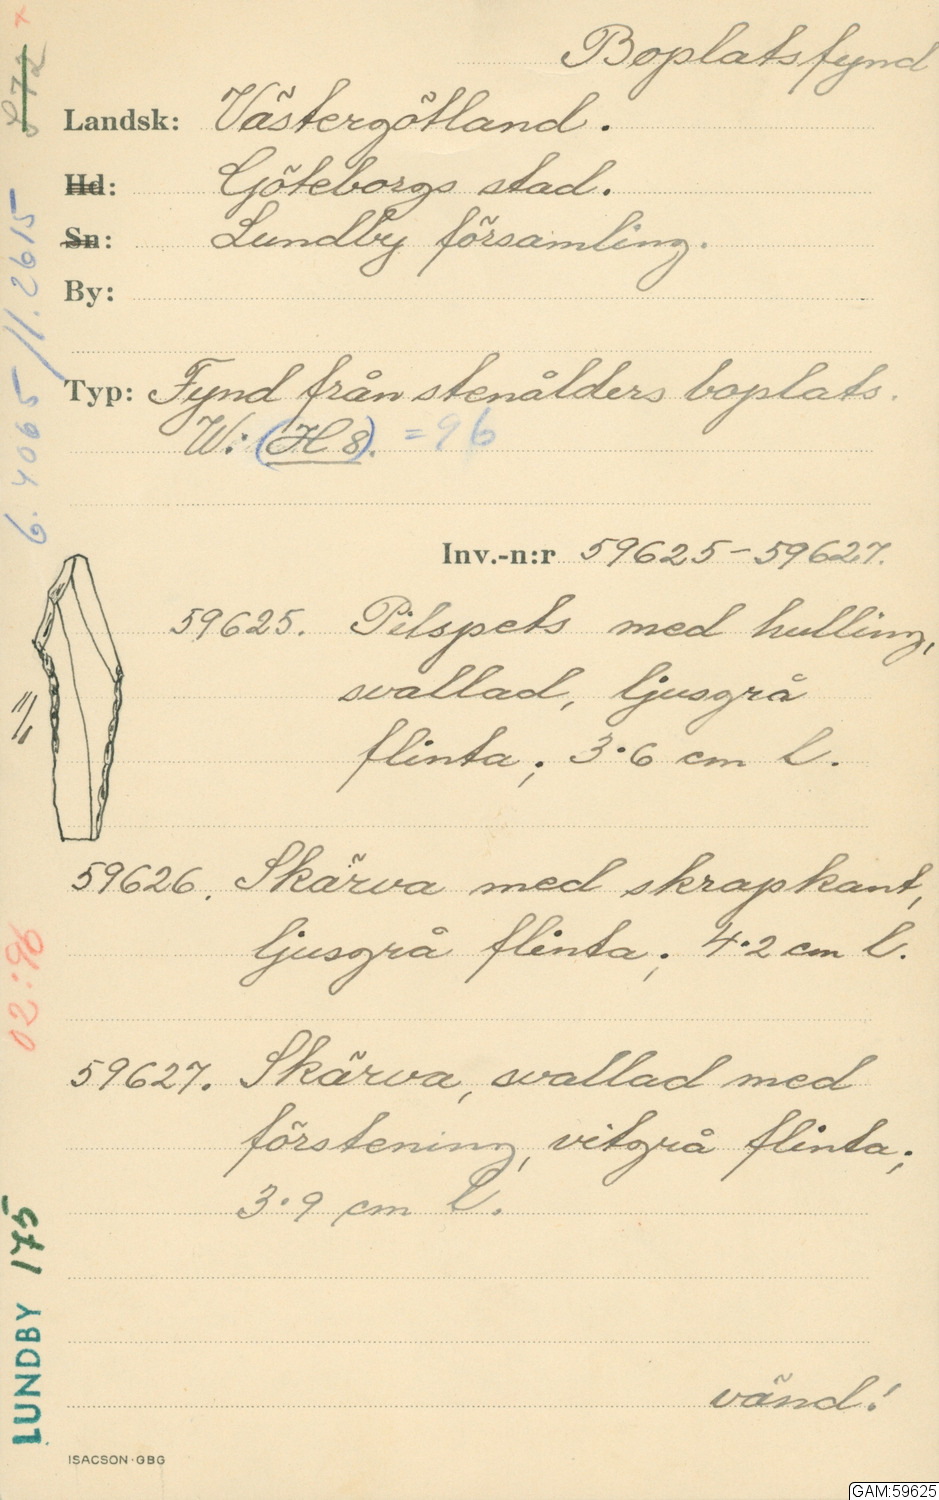 Boplatsfynd
Landsk: Västergötland.
Hd: Göteborgs stad.
Sn: Lundby församling.
By:
Typ: Fynd från stenålders boplats.
W: (H 8). = 96
Inv.-n:r 59625-59627.
59625. Pilspets med hulling,
svallad, ljusgrå
flinta; 3.6 cm l.
1/1
59626. Skärva med skrapkant,
ljusgrå flinta; 4.2 cm l.
59627. Skärva, svallad med
förstening, vitgrå flinta;
3.9 cm l.
vänd!
ISACSON·GBG
LUNDBY 175
02:96
6.4065/1.2615
572 x
GAM:59625